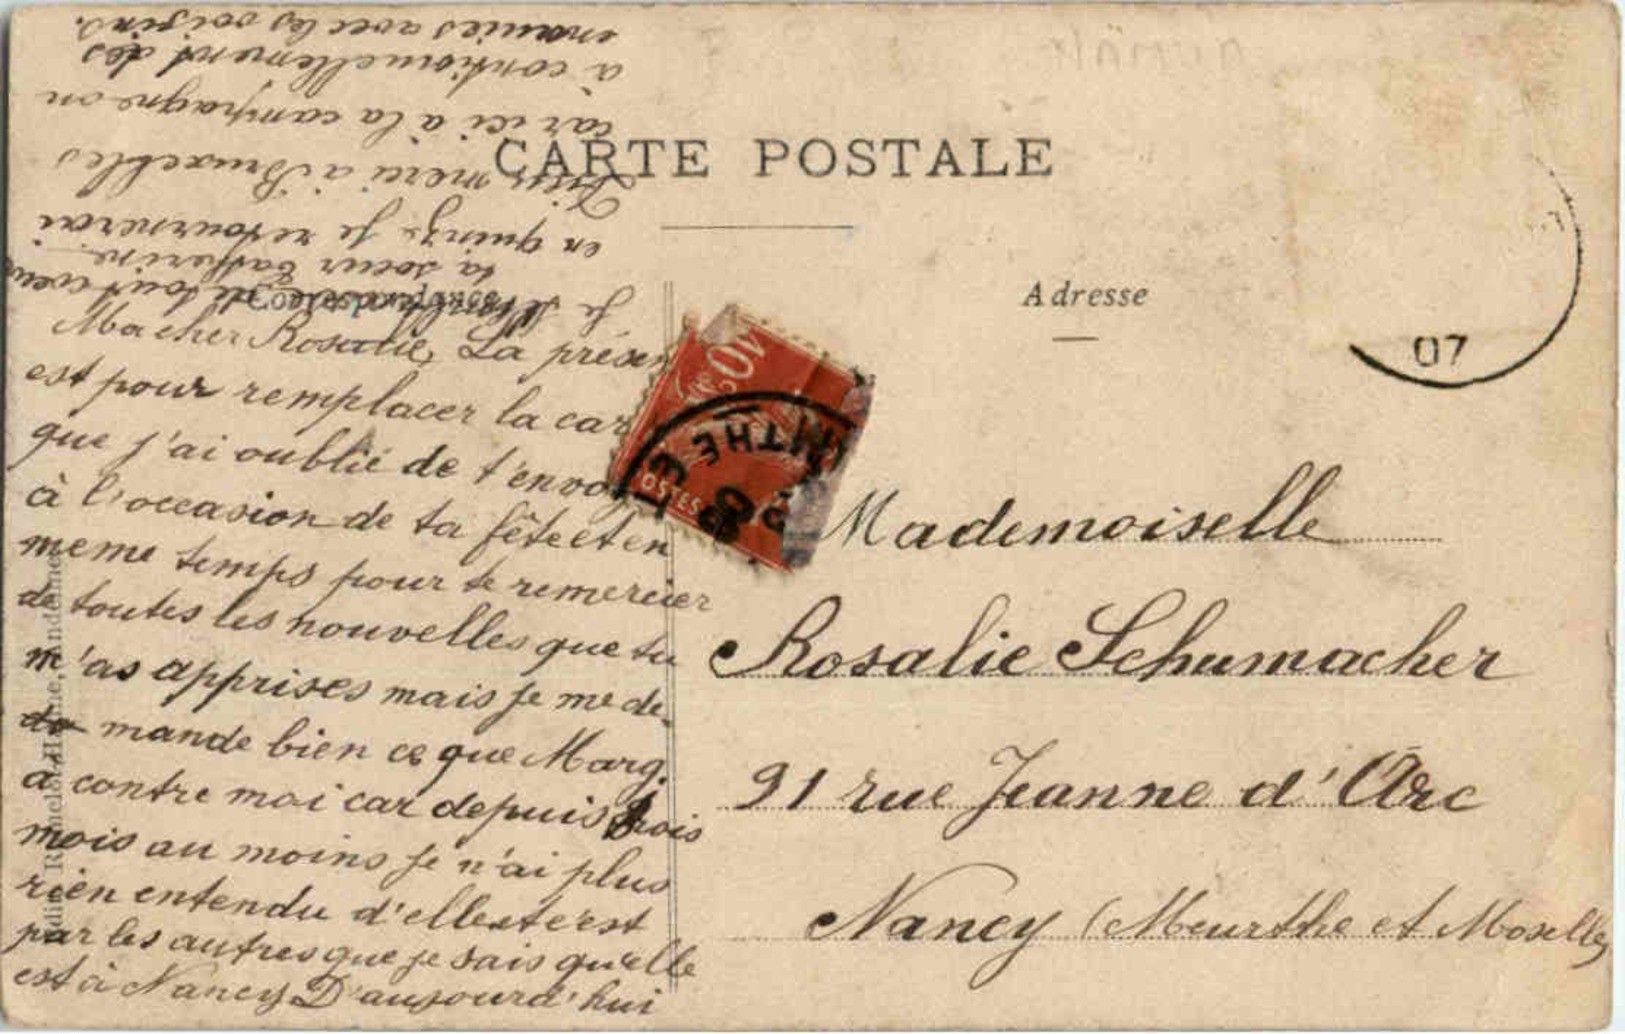 CARTE POSTALE
Correspondance
Adresse
07
10
POSTES
Ma cher Rosalie, La présen
est pour remplacer la car
que j'ai oublié de t'envoy
à l'occasion de ta fête et en
meme temps pour te remercier
de toutes les nouvelles que tu
m'as apprises mais je me de-
mande bien ce que Marg.
a contre moi car depuis trois
mois au moins je n'ai plus
rien entendu d'elle et c'est
par les autres que je sais qu'elle
est à Nancy D'aujourd'hui
en quinze je retournerai
Dieu merci à Bruxelles
car ici à la campagne on
a contionuellement des
ennuies avec les voisins.
Je t'embrasse de tout coeur
ta soeur Catherine
Mademoiselle
Rosalie Schumacher
91 rue Jeanne d'Arc
Nancy (Meurthe et Moselle)